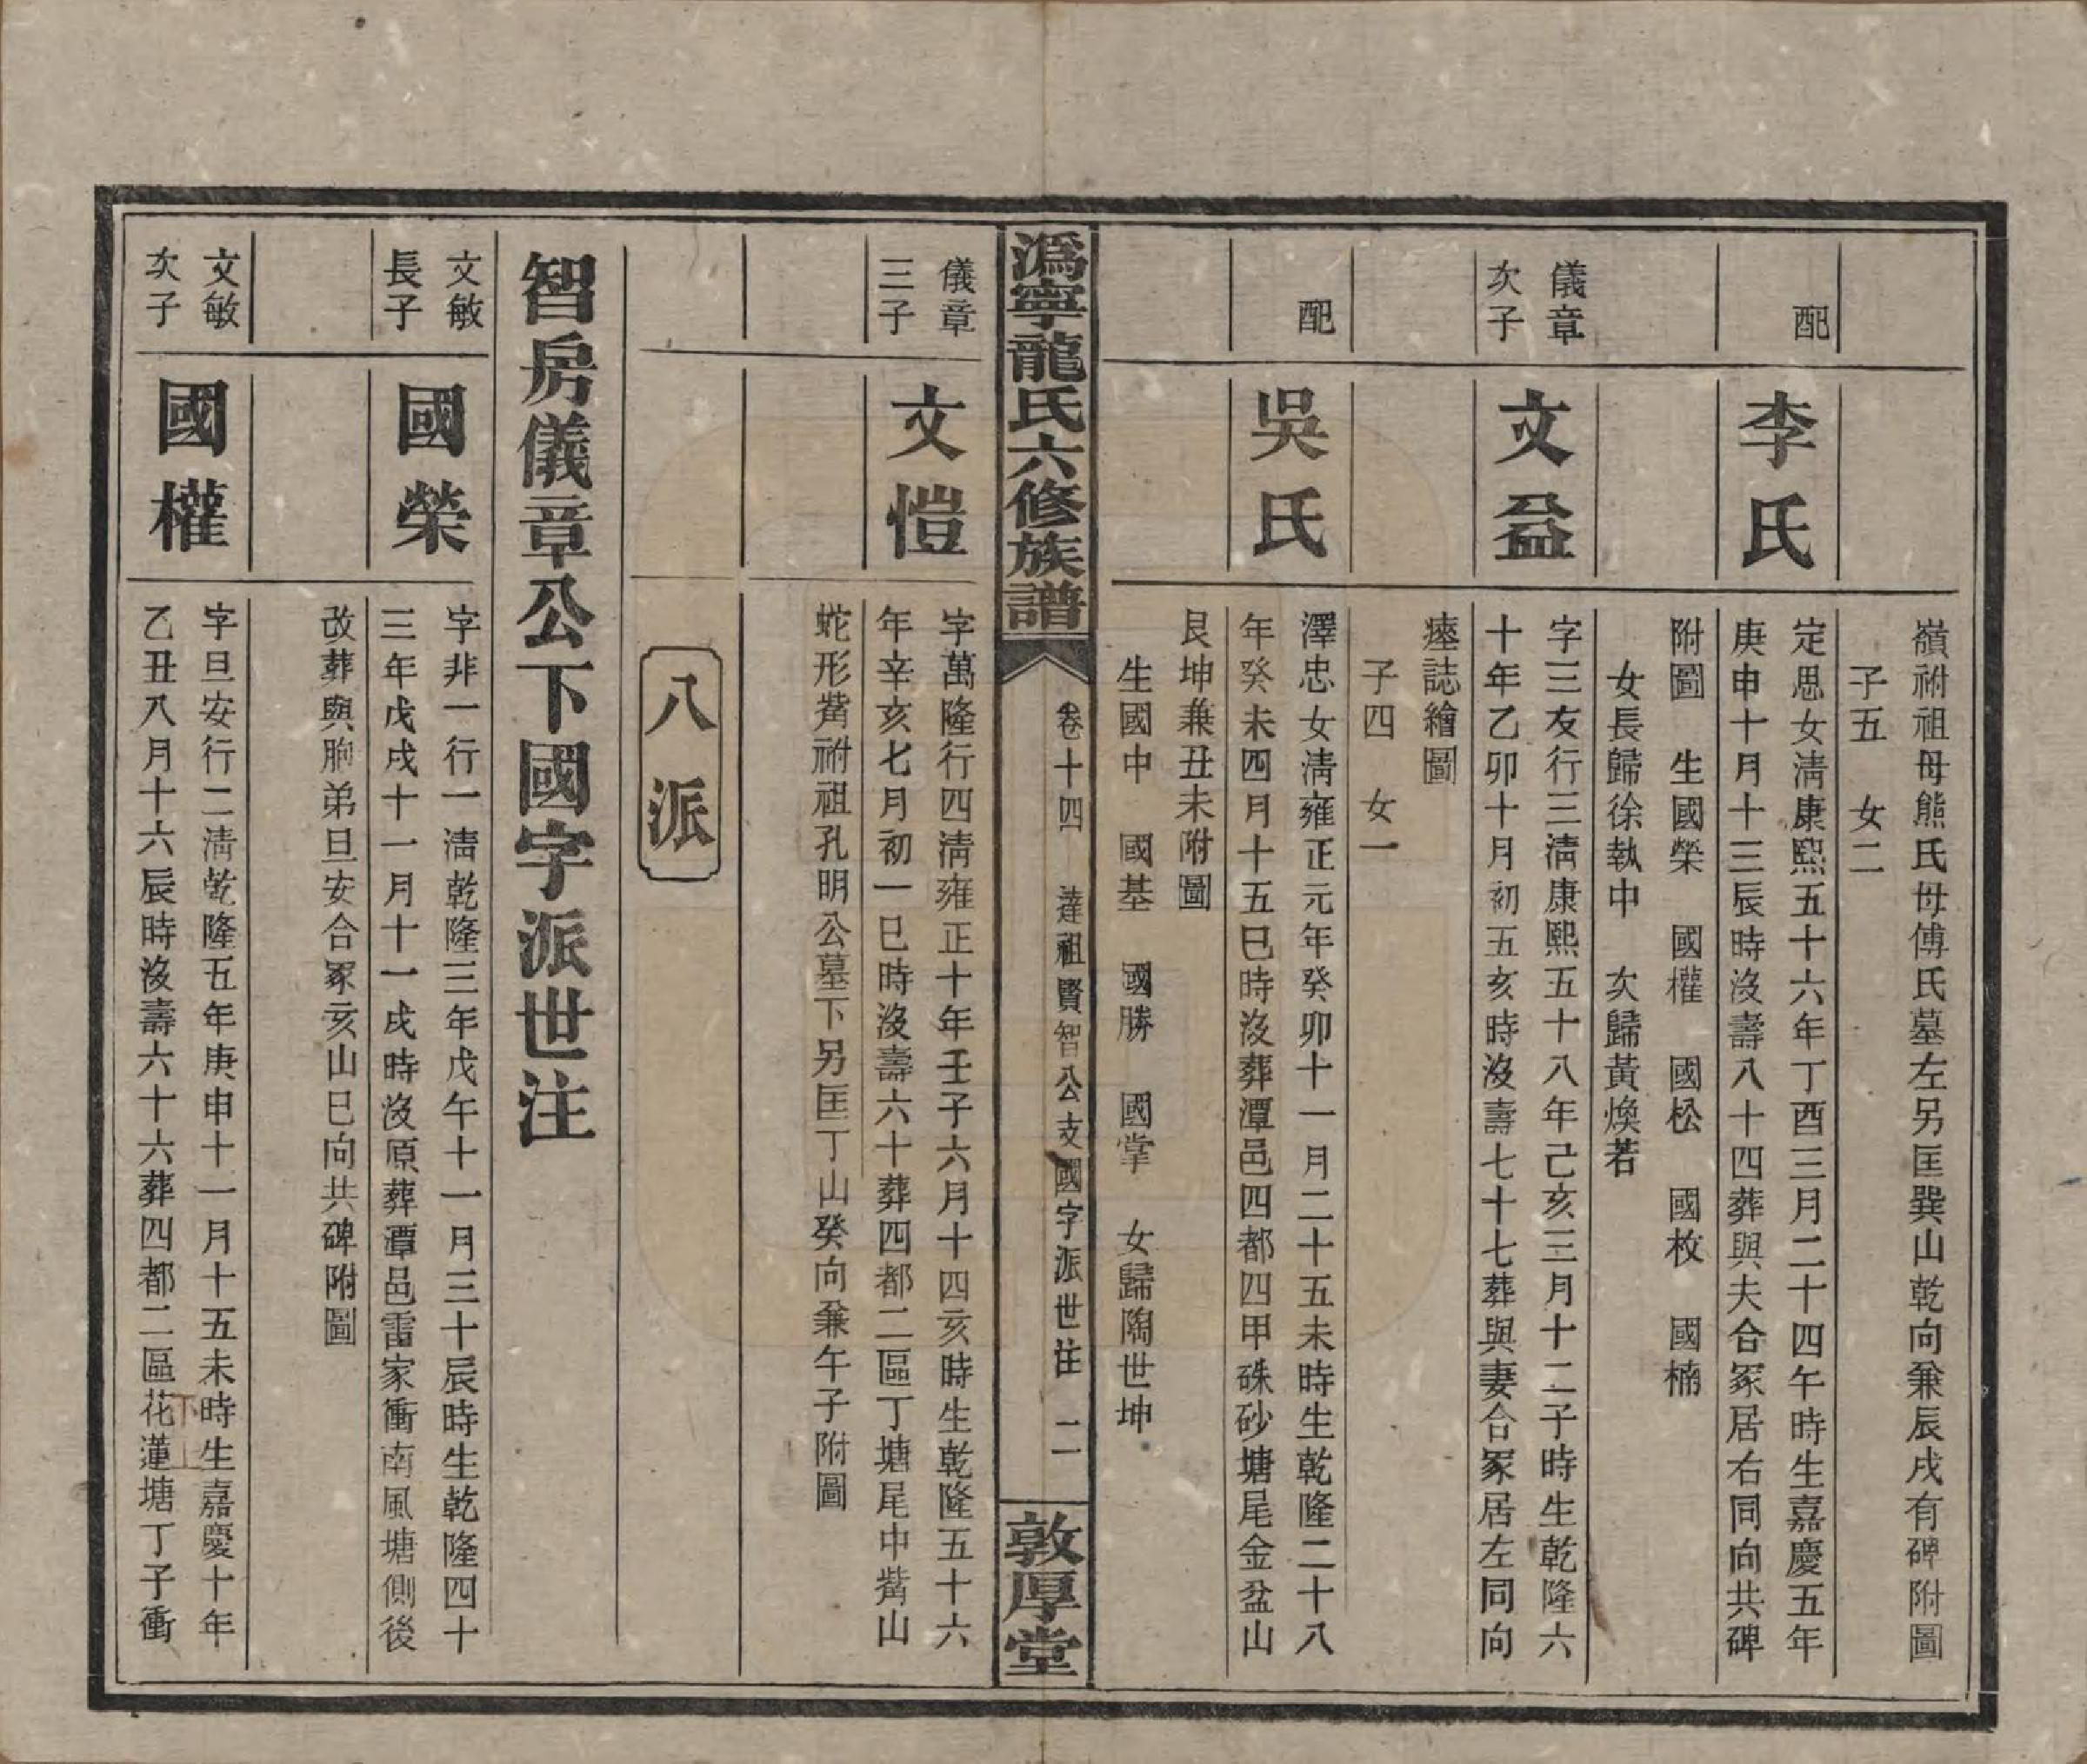 嶺祔祖母熊氏母傅氏墓左另匡巽山乾向兼辰戌有碑附圖
子五　女二
配
李氏
定思女淸康熙五十六年丁酉三月二十四午時生嘉慶五年
庚申十月十三辰時沒壽八十四葬與夫合冢居右同向共碑
附圖　生國榮　國權　國松　國枚　國楠
女長歸徐執中　次歸黃煥若
儀章
次子
文益
字三友行三淸康熙五十八年己亥三月十二子時生乾隆六
十年乙卯十月初五亥時沒壽七十七葬與妻合冢居左同向
瘞誌繪圖
子四　女一
配
吳氏
澤忠女淸雍正元年癸卯十一月二十五未時生乾隆二十八
年癸未四月十五巳時沒葬潭邑四都四甲硃砂塘尾金盆山
艮坤兼丑未附圖
生國中　國基　國勝　國掌　女歸陶世坤
潙寧龍氏六修族譜
卷十四　達祖賢智公支國字派世注　二
敦厚堂
儀章
三子
文愷
字萬隆行四淸雍正十年壬子六月十四亥時生乾隆五十六
年辛亥七月初一巳時沒壽六十葬四都二區丁塘尾中觜山
蛇形觜祔祖孔明公墓下另匡丁山癸向兼午子附圖
八派
智房儀章公下國字派世注
文敏
長子
國榮
字非一行一淸乾隆三年戊午十一月三十辰時生乾隆四十
三年戊戌十一月十一戌時沒原葬潭邑雷家衝南風塘側後
改葬與胞弟旦安合冢亥山巳向共碑附圖
文敏
次子
國權
字旦安行二淸乾隆五年庚申十一月十五未時生嘉慶十年
乙丑八月十六辰時沒壽六十六葬四都二區花蓮塘丁子衝